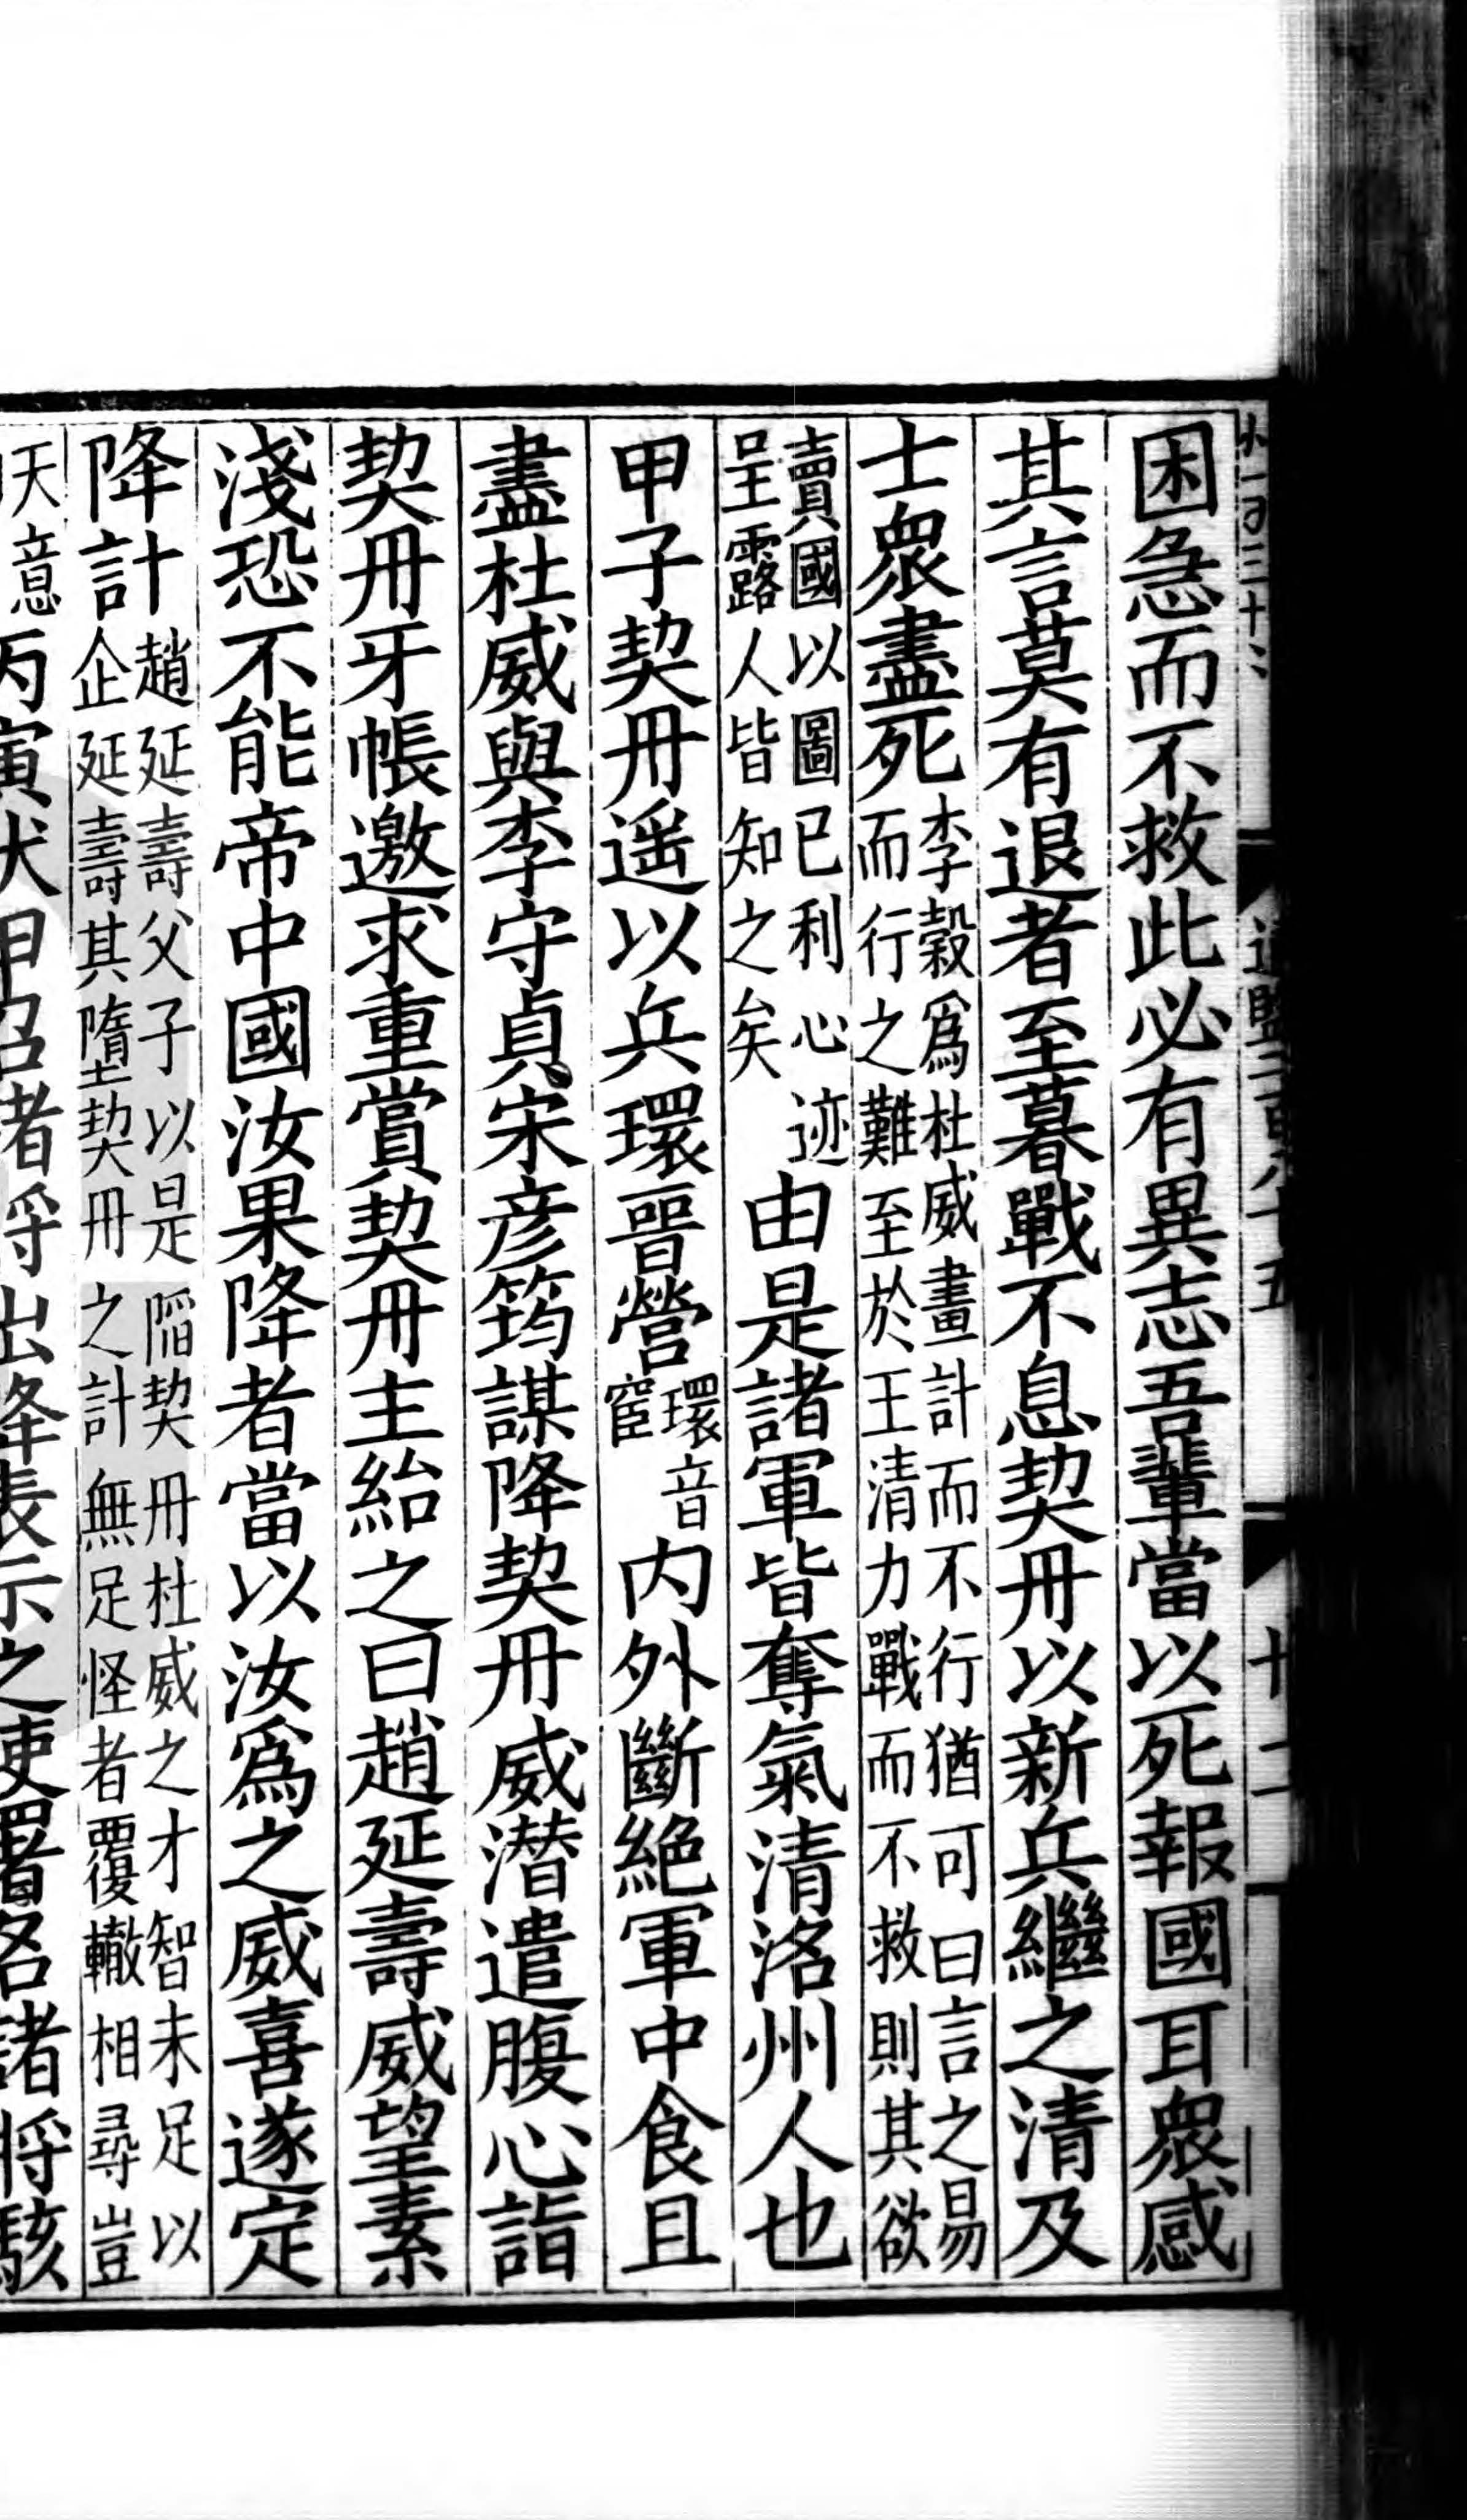 困急而不救此必有異志吾輩當以死報國耳衆感
其言莫有退者至暮戰不息契丹以新兵繼之清及
士衆盡死李穀爲杜威畫計而不行猶可曰言之易
而行之難至於王清力戰而不救則其欲
賣國以圖己利心迹
呈露人皆知之矣
由是諸軍皆奪氣清洺州人也
甲子契丹遥以兵環晉營環音
宦
内外斷絶軍中食且
盡杜威與李守貞宋彦筠謀降契丹威潜遣腹心詣
契丹牙帳邀求重賞契丹主紿之曰趙延壽威望素
淺恐不能帝中國汝果降者當以汝爲之威喜遂定
降計趙延壽父子以是陷契丹杜威之才智未足以
企延壽其墮契丹之計無足怪者覆轍相尋豈
天意
丙寅伏甲召諸將出降表示之使署名諸將駭